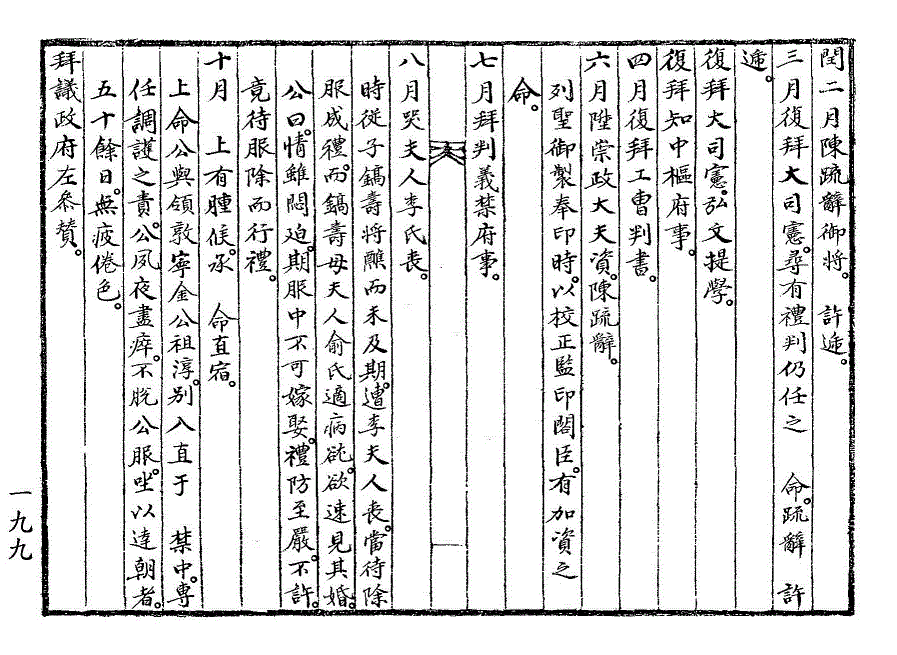 閏二月陳疏辭御將。 許遞。
三月復拜大司憲。尋有禮判仍任之 命。疏辭 許
遞。
復拜大司憲。弘文提學。
復拜知中樞府事。
四月復拜工曹判書。
六月陞崇政大夫資。陳疏辭。
列聖御製奉印時。以校正監印閣臣。有加資之
命。
七月拜判義禁府事。
八月哭夫人李氏喪。
時從子鎬壽將醮而未及期。遭李夫人喪。當待除
服成禮。而鎬壽母夫人兪氏適病毓。欲速見其婚。
公曰。情雖悶迫。期服中不可嫁娶。禮防至嚴。不許。
竟待服除而行禮。
十月 上有腫候。承 命直宿。
上命公與領敦寧金公祖淳。別入直于 禁中。專
任調護之責。公夙夜盡瘁。不脫公服。坐以達朝者。
五十餘日。無疲倦色。
拜議政府左參贊。
一九九